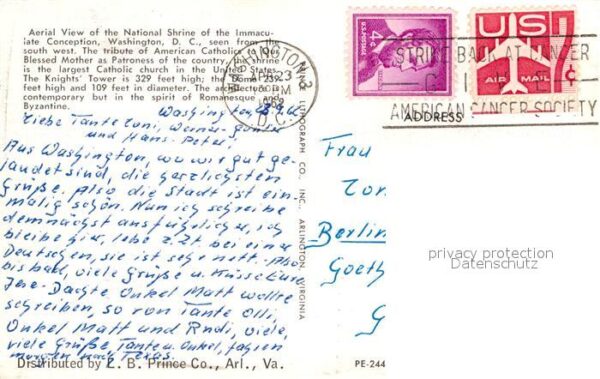 Aerial View of the National Shrine of the Immacu-
late Conception, Washington, D. C., seen from the
south west. The tribute of American Catholics to Our
Blessed Mother as Patroness of the country, the shrine
is the largest Catholic church in the United States.
The Knights' Tower is 329 feet high; the Dome 239
feet high and 109 feet in diameter. The architecture is
contemporary but in the spirit of Romanesque and
Byzantine.
WASHINGTON
23
PM
D. C.
4¢
U.S. POSTAGE
US
AIR MAIL
¢
STRIKE BACK AT CANCER
GIVE
AMERICAN CANCER SOCIETY
ADDRESS
Washington,
Liebe Tante Toni, Werner, Günter
und Hans-Peter,
Aus Washington, wo wir gut ge-
landet sind, die herzlichsten
Grüße. Also die Stadt ist ein-
malig schön. Nun ich schreibe
demnächst ausführlicher, ich
bleibe hier, lebe z.Zt bei einer
Deutschen, sie ist sehr nett. Also
bis bald, viele Grüße u. Küsse Eure
Dachte Onkel Matt wollte
schreiben, so von Tante Olli
Onkel Matt und Rudi, viele,
viele Grüße Tante u. Onkel, fahren
morgen nach Texas.
Distributed by E. B. Prince Co., Arl., Va.
PRINCE LITHOGRAPH CO., INC., ARLINGTON, VIRGINIA
PE-244
Frau
Tor
Berlin
Goeth
G
privacy protection
Datenschutz